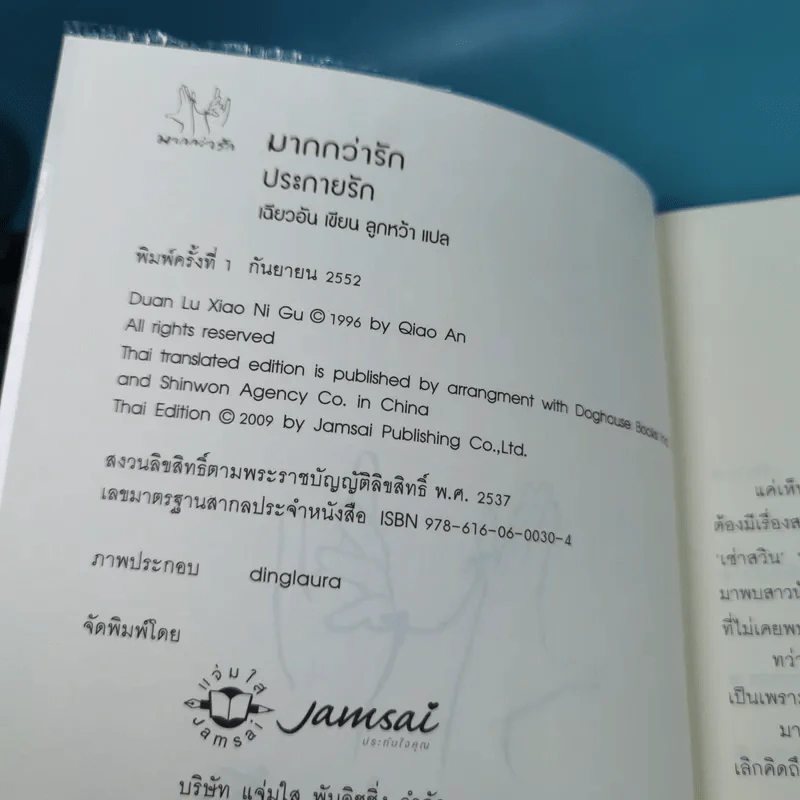 มากกว่ารัก
มากกว่ารัก
ประกายรัก
เฉียวอัน เขียน ลูกหว้า แปล
พิมพ์ครั้งที่ 1 กันยายน 2552
Duan Lu Xiao Ni Gu © 1996 by Qiao An
All rights reserved
Thai translated edition is published by arrangment with Doghouse Books
and Shinwon Agency Co. in China
Thai Edition © 2009 by Jamsai Publishing Co.,Ltd.
สงวนลิขสิทธิ์ตามพระราชบัญญัติลิขสิทธิ์ พ.ศ. 2537
เลขมาตรฐานสากลประจำหนังสือ ISBN 978-616-06-0030-4
ภาพประกอบ dinglaura
จัดพิมพ์โดย
แจ่มใส
Jamsai
Jamsai
ประทับใจคุณ
บริษัท แจ่มใส พับลิชชิ่ง จำกัด
แค่เห็น
ต้องมีเรื่องส
'เซ่าสวิน'
มาพบสาวน้
ที่ไม่เคยพบ
ทว่า
เป็นเพราะ
มา
เลิกคิดถึ